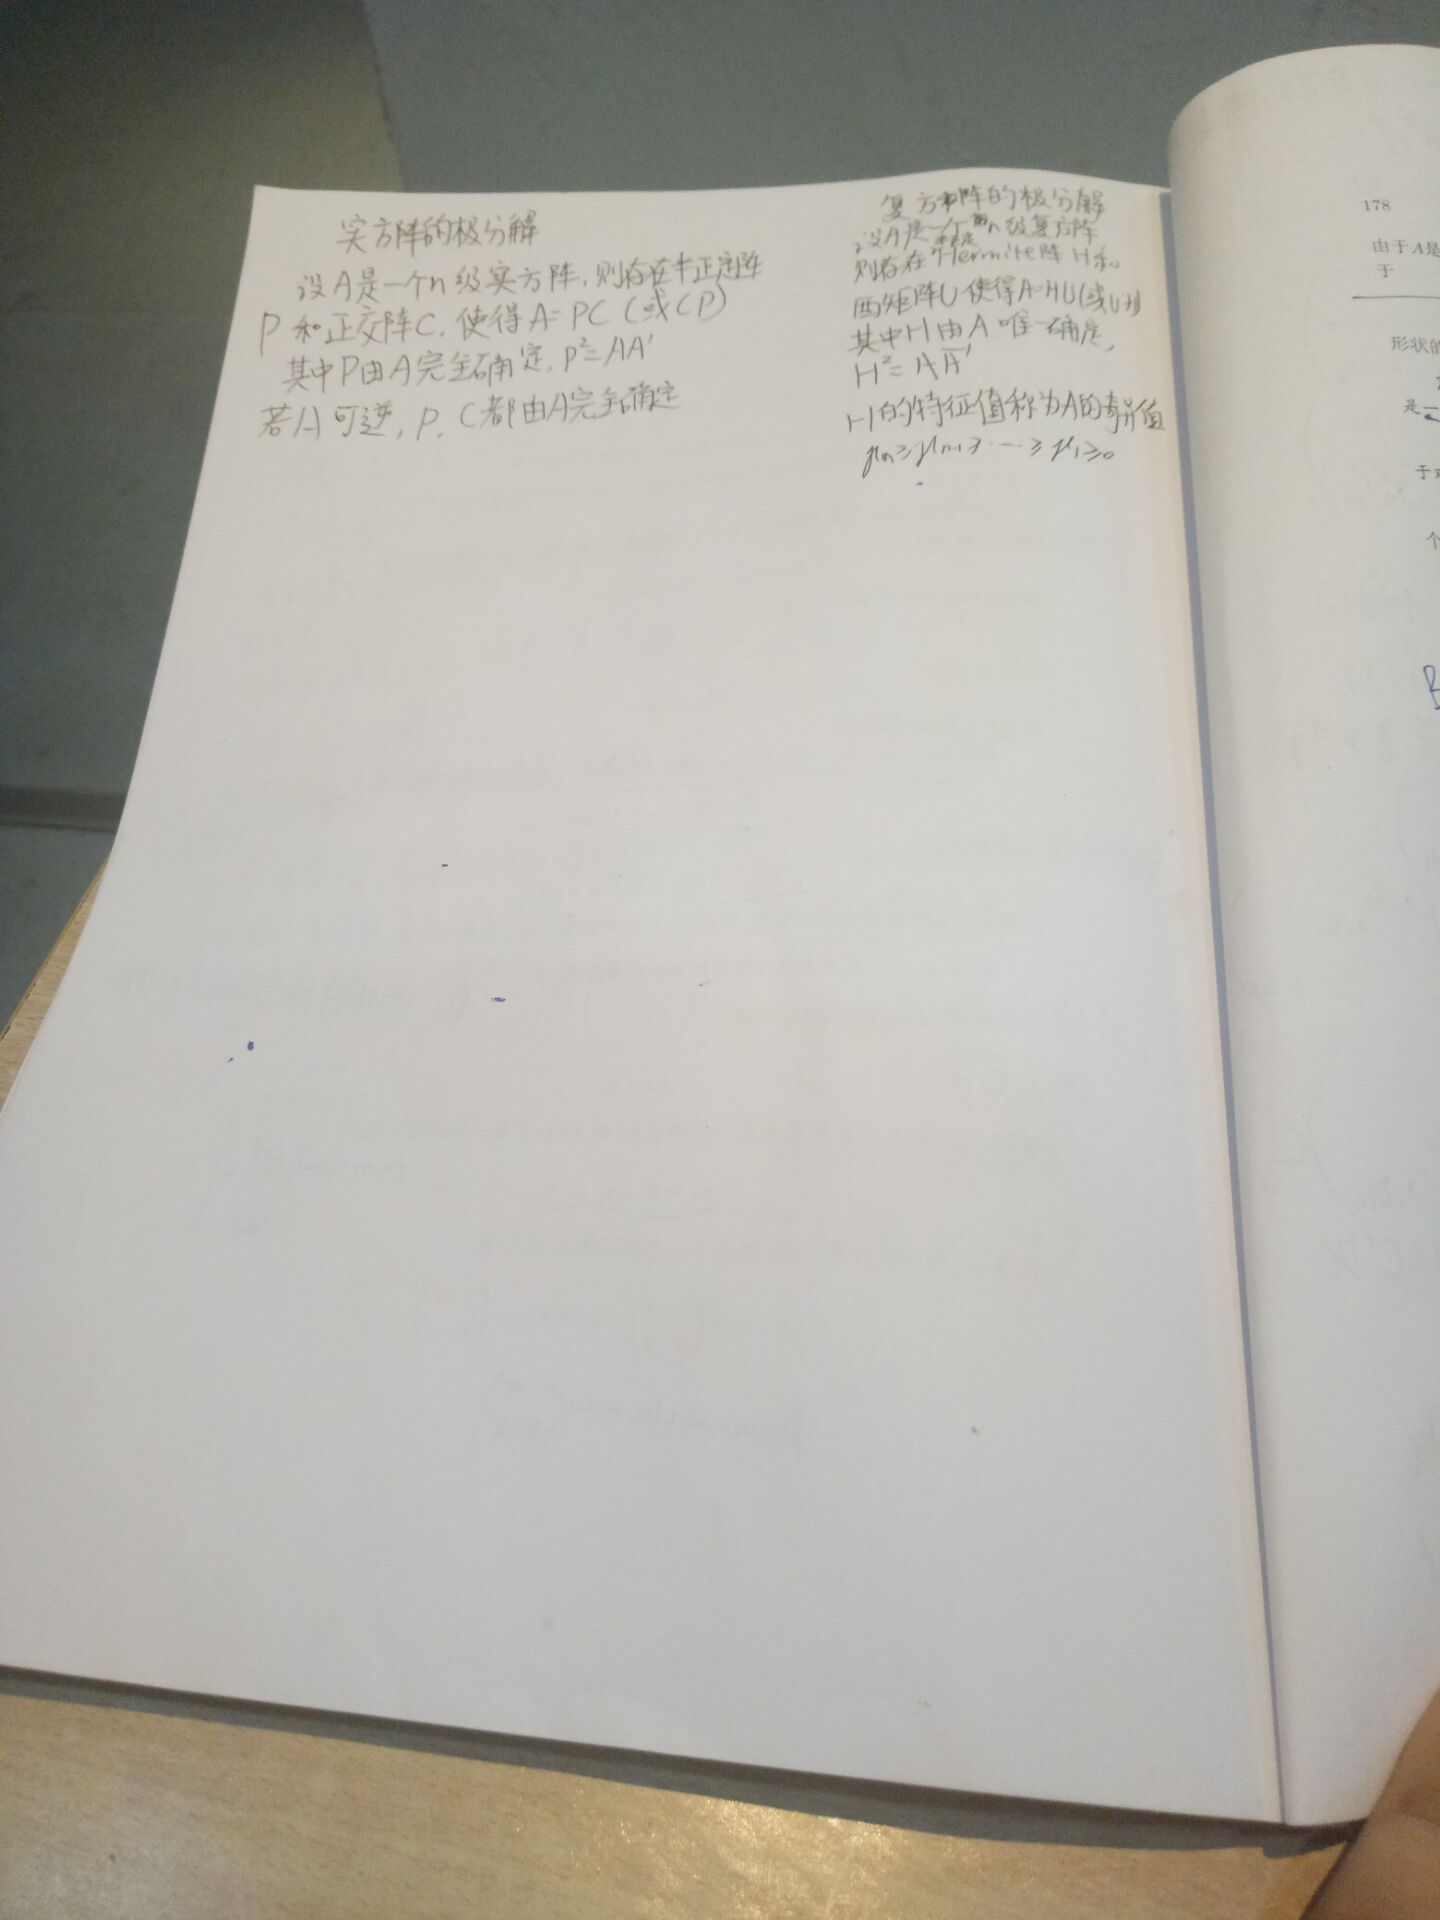 实方阵的极分解
设A是一个n级实方阵,则存在半正定阵
P和正交阵C,使得A=PC(或CP)
其中P由A完全确定,P²=AA'
若A可逆,P,C都由A完全确定
复方阵的极分解
设A是一个n级复方阵
半正定
则存在Hermite阵H和
酉矩阵U使得A=HU(或UH)
其中H由A唯一确定,
H²=AĀ'
H的特征值称为A的奇异值
μn≥μn-1≥…≥μ1≥0
178
由于A是
于
形状的
是一
于
个
B